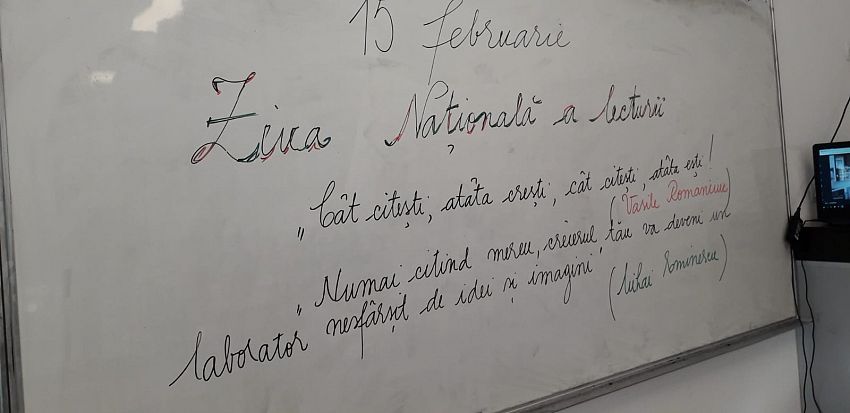 15 februarie
Ziua Națională a lecturii
„Cât citești, atâta crești, cât citești, atâta ești!
(Vasile Romanciuc)
„Numai citind mereu, creierul tău va deveni un
laborator nesfârșit de idei și imagini”
(Mihai Eminescu)